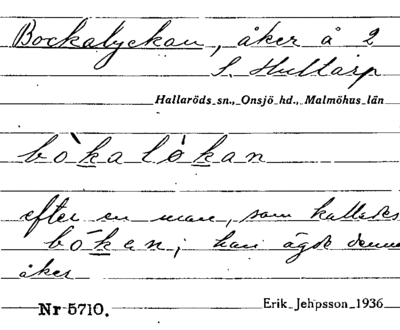 Bockalyckan, åker å 2
S. Hultarp
Hallaröds sn., Onsjö hd., Malmöhus län
bò̀kalòkan
efter en man, som kallades
bòkan; han ägde denna
åker
Nr 5710.
Erik Jehpsson 1936